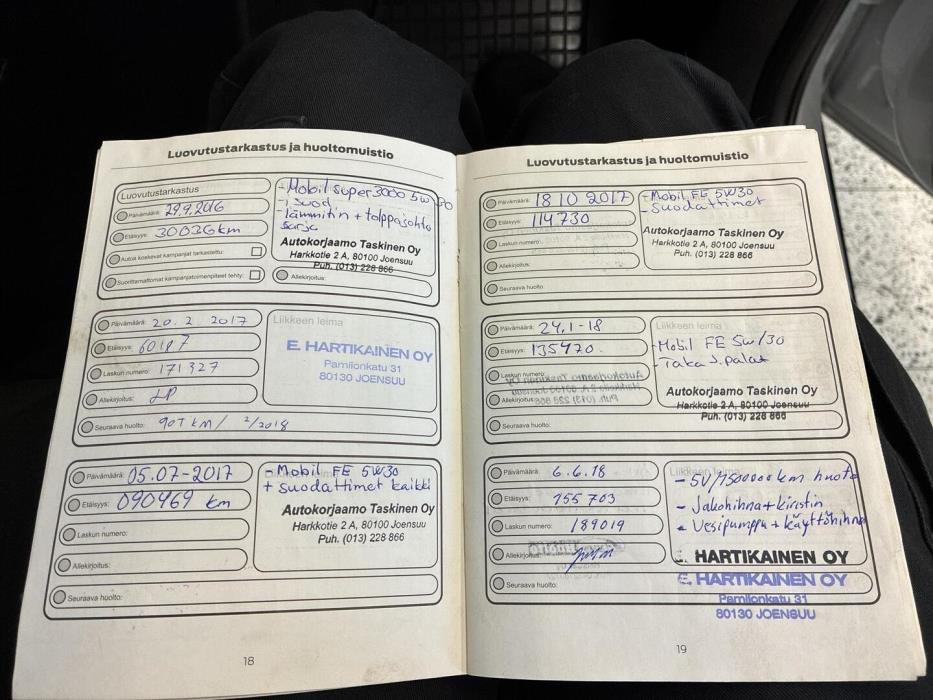 Luovutustarkastus ja huoltomuistio
Luovutustarkastus
Päivämäärä: 29.9.2016
Etäisyys: 30036km
Autoa koskevat kampanjat tarkastettu:
Suorittamattomat kampanjatoimenpiteet tehty:
- Mobil super 3000 5w30
- , suod
- lämmitin + tolppajohto
sarja
Autokorjaamo Taskinen Oy
Harkkotie 2 A, 80100 Joensuu
Puh. (013) 228 866
Allekirjoitus:
Päivämäärä: 20.2 2017
Etäisyys: 60187
Laskun numero: 171327
Allekirjoitus:
Seuraava huolto: 90T km / 2/2018
Liikkeen leima
E. HARTIKAINEN OY
Pamilonkatu 31
80130 JOENSUU
Päivämäärä: 05.07-2017
Etäisyys: 090469 km
Laskun numero:
Allekirjoitus:
Seuraava huolto:
- Mobil FE 5W30
+ suodattimet kaikki
Autokorjaamo Taskinen Oy
Harkkotie 2 A, 80100 Joensuu
Puh. (013) 228 866
18
Luovutustarkastus ja huoltomuistio
Päivämäärä: 18 10 2017
Etäisyys: 114730
Laskun numero:
Allekirjoitus:
Seuraava huolto:
- Mobil FE 5W30
- suodattimet
Autokorjaamo Taskinen Oy
Harkkotie 2 A, 80100 Joensuu
Puh. (013) 228 866
Päivämäärä: 24.1-18
Etäisyys: 135470.
Laskun numero:
Allekirjoitus:
Seuraava huolto:
Liikkeen leima
- Mobil FE 5w/30
- Taka J.palat
Autokorjaamo Taskinen Oy
Harkkotie 2 A, 80100 Joensuu
Puh. (013) 228 866
Päivämäärä: 6.6.18
Etäisyys: 155703
Laskun numero: 189019
Allekirjoitus:
Seuraava huolto:
Liikkeen leima
- 5V/150000km huolto
- Jakohihna + kiristin
- Vesipumppu + käyttöhihna
E. HARTIKAINEN OY
E. HARTIKAINEN OY
Pamilonkatu 31
80130 JOENSUU
19